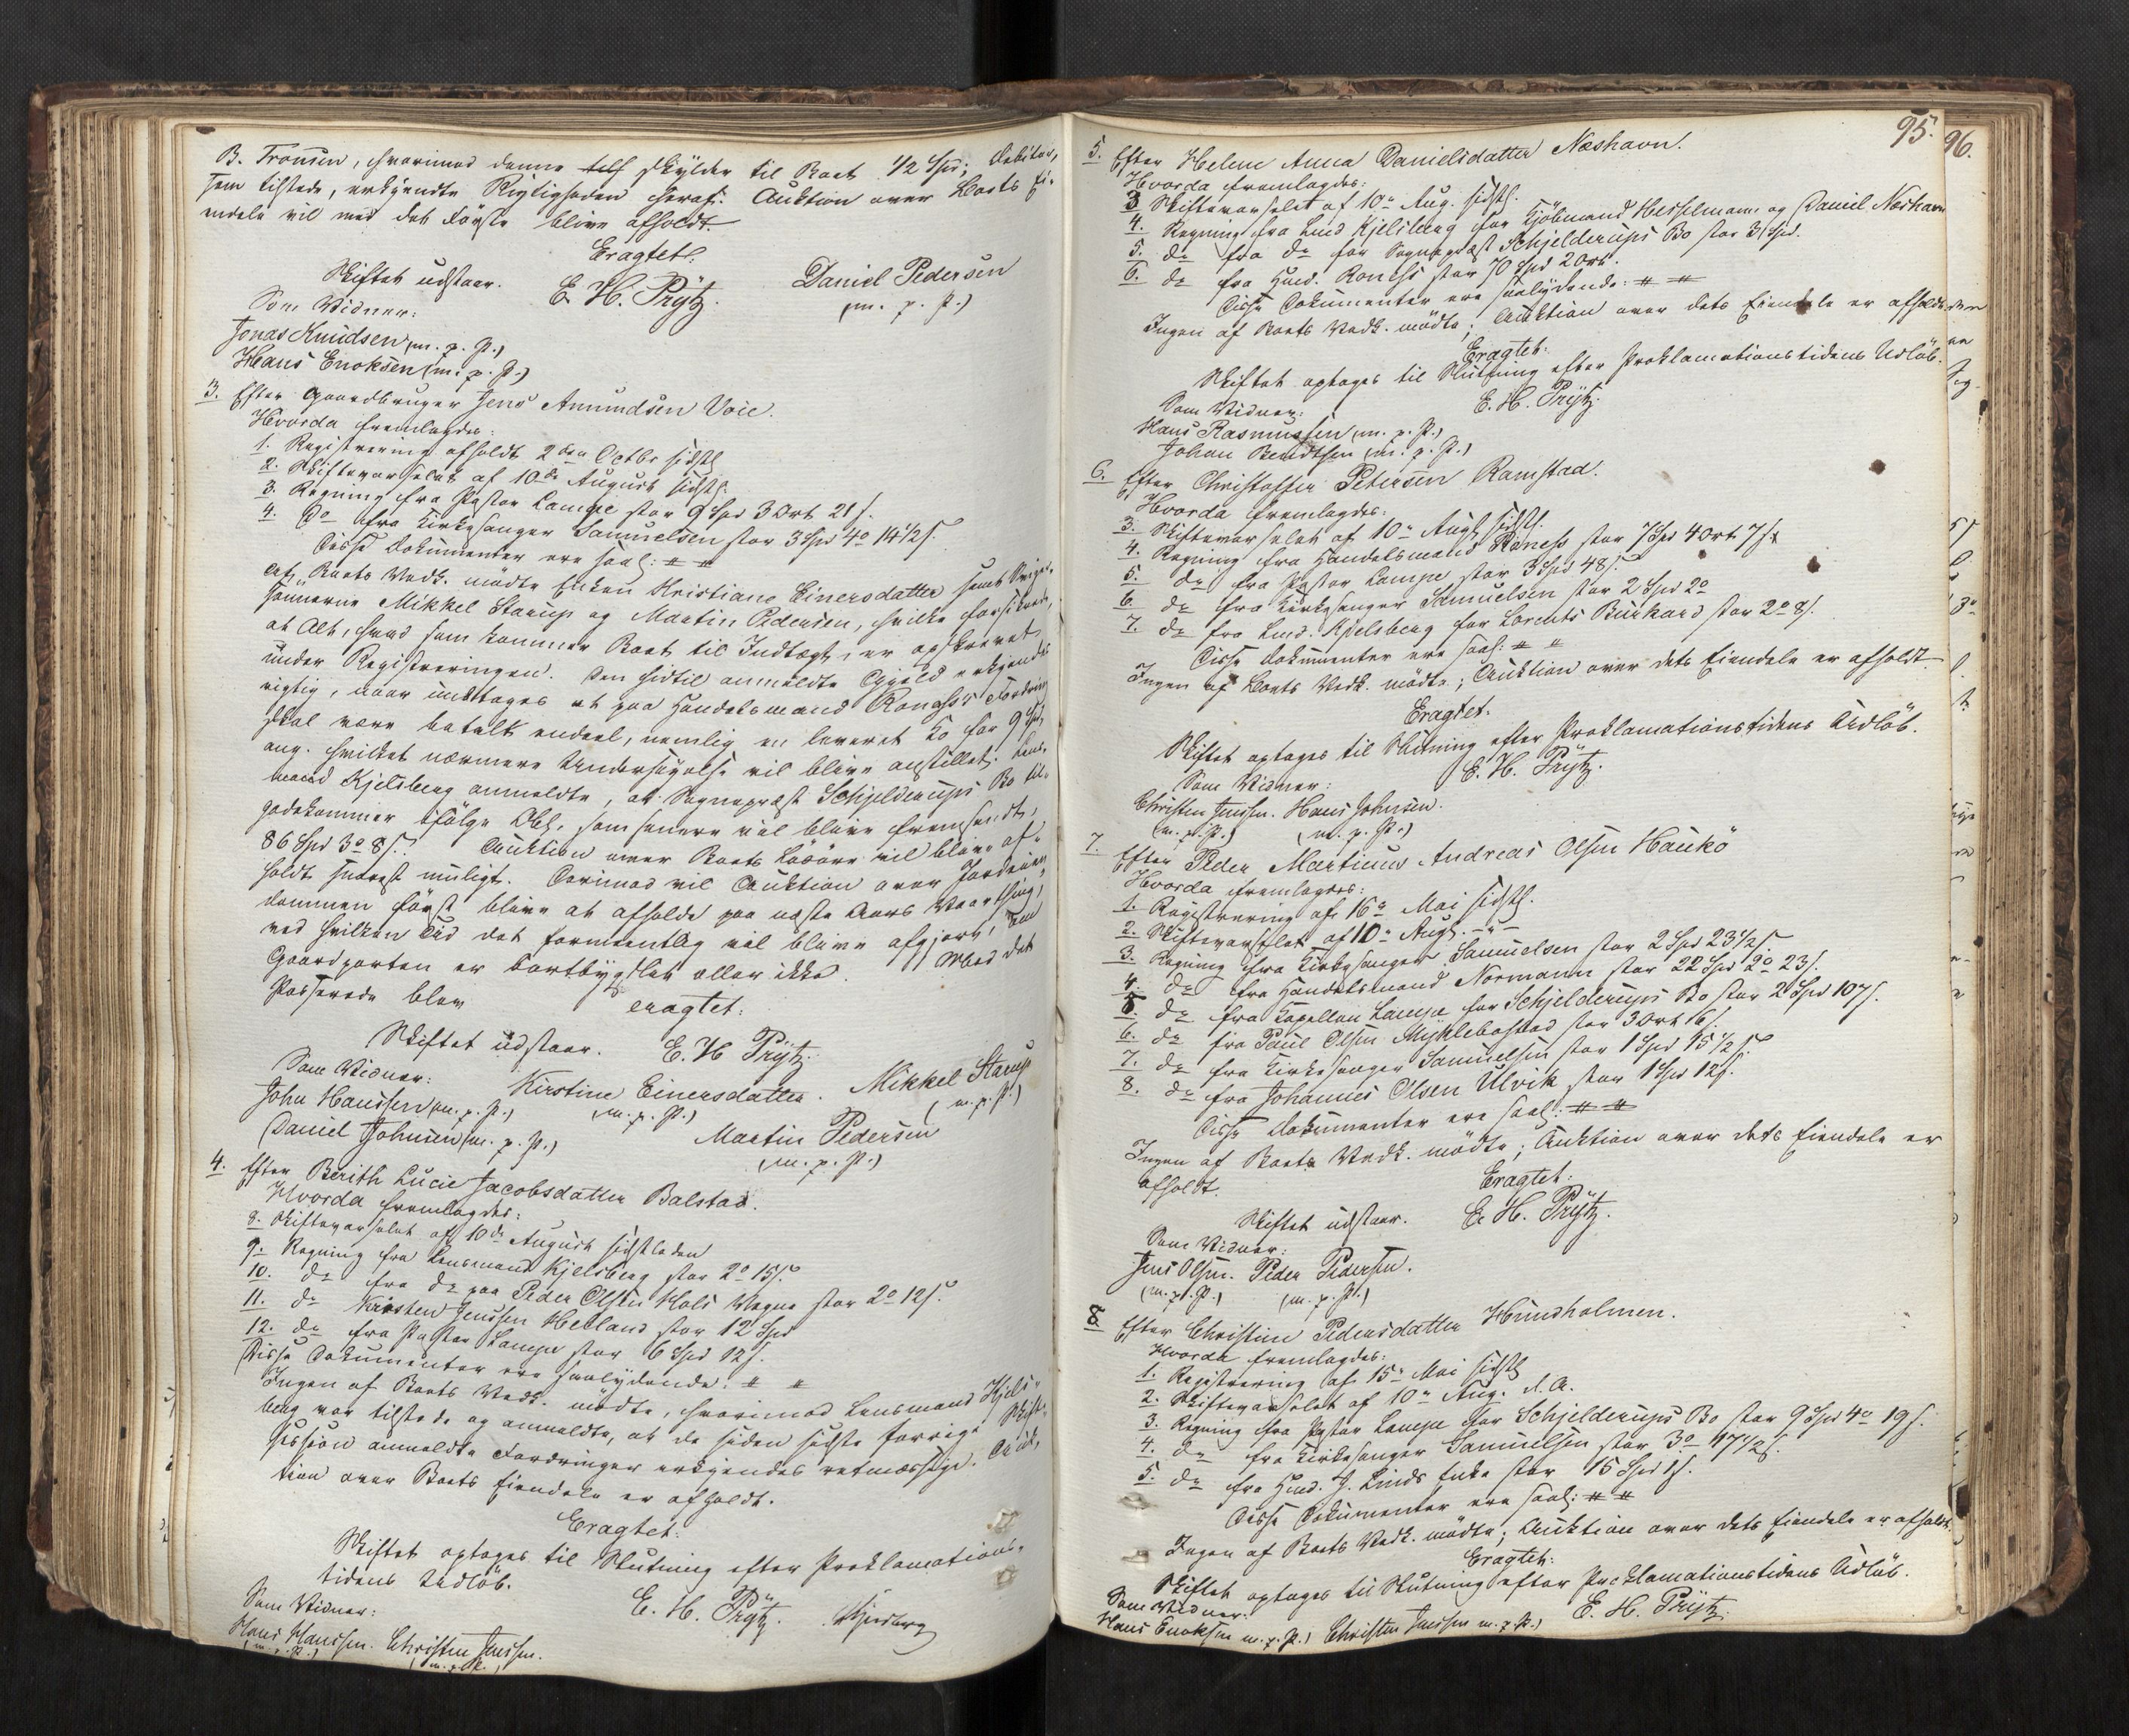 B. Tronsen, hvorimod denne skÿlder til Boet 1/2 Spd; Debitor,
som tilstede, erkjendte Rigtigheden heraf. Auktion over Boets Ei-
endele vil med det Første blive afholdt.
Eragtet:
Skiftet udstaar. E. H. Prÿtz. Daniel Pedersen
Som Vidner: (m. p. P.)
Jonas Knudsen (m. p. P.)
Hans Enoksen (m. p. P.)
3. Efter Gaardbruger Jens Amundsen Voie.
Hvorda fremlagdes:
1. Registrering afholdt 2den Octbr sidstl
2. Skiftevarselet af 10de August sidstl.
3. Regning fra Pastor Lampe stor 9 Spd 3 Ort 21 s.
4. Do fra Kirkesanger Samuelsen stor 3 Spd 4o 14 1/2 s.
Disse Dokumenter ere saal: # #
Af Boets Vedk. mødte Enken Kristiane Einersdatter samt Sviger-
sønnerne Mikkel Starup og Martin Pedersen, hvilke forsikrede,
at Alt, hvad som kommer Boet til Indtægt, er opskrevet
under Registreringen. Den hidtil anmeldte Gjæld erkjendtes
rigtig, naar undtages at paa Handelsmand Rønes's Fordring
skal være betalt endeel, nemlig en leveret Ko for 9 Spd,
ang. hvilket nærmere Undersøgelse vil blive anstillet. Lens-
mand Kjelsberg anmeldte, at Sognepræst Schjelderups Bo til-
godekommer ifølge Obl., som senere vil blive fremsendt,
86 Spd 3o 8 s. Auktion over Boets Løsøre vil blive af-
holdt snarest muligt. Derimod vil Auktion over Jordeien-
dommen først blive at afholde paa næste Aars Vaarthing,
ved hvilken Tid det formeentlig vil blive afgjort, om
Gaardparten er bortbÿgslet eller ikke. Med det
Passerede blev eragtet:
Skiftet udstaar. E. H Prÿtz.
Som Vidner: Kirstine Einersdatter. Mikkel Starup
John Hanssen (m. p. P.) (m. p. P.) (m. p. P.)
Daniel Johnsen (m. p. P.) Martin Pedersen
(m. p. P.)
4. Efter Berith Lucie Jacobsdatter Balstad.
Hvorda fremlagdes:
8. Skiftevarselet af 10de August sidstleden
9. Regning fra Lensmand Kjelsberg stor 2o 15 s.
10. do fra do paa Peder Olsen Hols Vegne stor 2o 12 s.
11. do Kirsten Jenssen Helland stor 12 Spd
12. do fra Pastor Lampe stor 6 Spd 12 s.
Disse Dokumenter ere saalydende: # #
Ingen af Boets Vedk. mødte, hvorimod Lensmand Kjels-
berg var tilstede og anmeldte, at de siden sidste forrige Skifte-
session anmeldte Fordringer erkjendes retmæssige. Auk-
tion over Boets Eiendele er afholdt.
Eragtet:
Skiftet optages til Slutning efter Proklamations-
tidens Udløb.
Som Vidner: E. H. Prÿtz. Kjelsberg
Hans Hanssen. Christen Jenssen.
(m. p. P.) (m. p. P.)
95. 96.
5. Efter Helene Anna Danielsdatter Næshavn.
Hvorda fremlagdes:
3 Skiftevarselet af 10de Aug. sidstl.
4. Regning fra Lmd Kjelsberg for Kjøbmand Hesselmann og Daniel Næshavn
5. do fra do for Sognepræst Schjelderups Bo stor 31 Spd.
6. do fra Hmd. Rønes stor 70 Spd 2 Ort.
Disse Dokumenter ere saalydende: # #
Ingen af Boets Vedk. mødte; Auktion over dets Eiendele er afholdt.
Eragtet:
Skiftet optages til Slutning efter Proklamationstidens Udløb.
Som Vidner: E. H. Prÿtz.
Hans Rasmussen (m. p. P.)
Johan Bendtsen (m. p. P.)
6. Efter Christoffer Petersen Ramstad.
Hvorda fremlagdes:
3. Skiftevarselet af 10de Augst sidstl.
4. Regning fra Handelsmand Rønes stor 7 Spd 4 Ort 7 s.
5. do fra Pastor Lampe stor 3 Spd 48 s.
6. do fra Kirkesanger Samuelsen stor 2 Spd 2o
7. do fra Lmd. Kjelsberg for Lorents Burkard stor 2o 8 s.
Disse Dokumenter ere saal: # #
Ingen af Boets Vedk. mødte; Auktion over dets Eiendele er afholdt.
Eragtet.
Skiftet optages til Slutning efter Proklamationstidens Udløb.
Som Vidner: E. H. Prÿtz.
Christen Jenssen. Hans Johnsen.
(m. p. P.) (m. p. P.)
7. Efter Peder Martinus Andreas Olsen Haukö
Hvorda fremlagdes:
1. Registrering af 16de Mai sidstl.
2. Skiftevarselet af 10de Augst. -"-
3. Regning fra Kirkesanger Samuelsen stor 2 Spd 23 1/2 s.
4. do fra Handelsmand Normann stor 22 Spd 2o 23 s.
5. do fra Kapellan Lampe for Schjelderups Bo stor 2 Spd 107 s.
6. do fra Paul Olsen Mÿklebostad stor 3 Ort 16 s.
7. do fra Kirkesanger Samuelsen stor 1 Spd 15 1/2 s.
8. do fra Johannes Olsen Ulvik stor 1 Spd 12 s.
Disse Dokumenter ere saal: # #
Ingen af Boets Vedk. mødte; Auktion over dets Eiendele er
afholdt. Eragtet:
Skiftet udstaar. E. H. Prÿtz.
Som Vidner:
Jens Olsen. Peder Pedersen.
(m. p. P.) (m. p. P.)
8. Efter Christine Pedersdatter Hundholmen.
Hvorda fremlagdes:
1. Registrering af 15de Mai sidstl
2. Skiftevarselet af 10de Aug. d. A.
3. Regning fra Pastor Lampe for Schjelderups Bo stor 9 Spd 4o 19 s.
4. do fra Kirkesanger Samuelsen stor 3o 17 1/2 s.
5. do fra Hmd. J. Linds Enke stor 15 Spd 1 s.
Disse Dokumenter ere saal: # #
Ingen af Boets Vedk. mødte; Auktion over dets Eiendele er afholdt.
Eragtet:
Skiftet optages til Slutning efter Proklamationstidens Udløb.
Som Vidner: E. H. Prÿtz.
Hans Enoksen m. p. P.) Christen Jenssen m. p. P.)